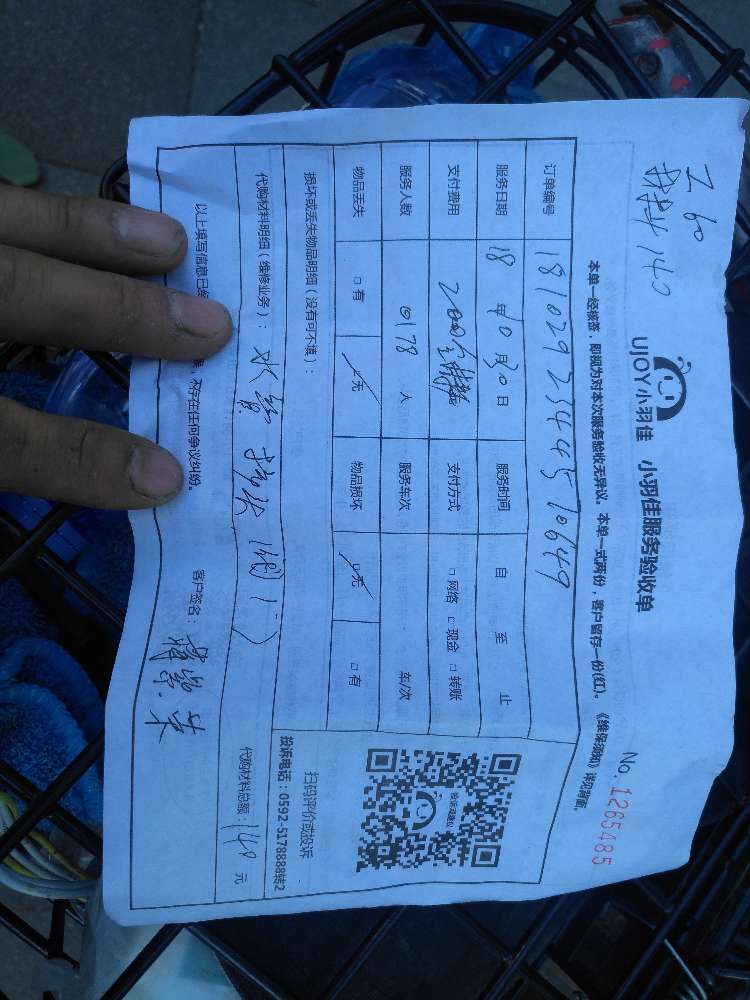 Z 60
材料 140
UJOY小羽佳 小羽佳服务验收单
No. 1265485
本单一经核签，即视为对本次服务验收无异议。本单一式两份，客户留存一份(红)。《维保须知》详见背面。
订单编号 18102923444510649
服务日期 18 年 10 月 30 日 服务时间 自 至 止
支付费用 支付方式 □ 网络 □ 现金 □ 转账
服务人数 人 服务车次 车/次
物品丢失 □ 有 □ 无 物品损坏 □ 无 □ 有
损坏或丢失物品明细（没有可不填）：
代购材料明细（维修业务）： 水管
代购材料总额：148 元
投诉或建议
扫码评价或投诉
投诉电话：0592-5178888转2
以上填写信息已经 不存在任何争议纠纷。 客户签名：